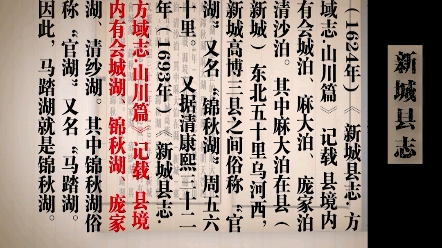 新城县志
(1624年)《新城县志·方
域志·山川篇》记载 县境内
有会城泊、麻大泊、庞家泊
清沙泊。其中麻大泊在县(
新城)东北五十里乌河西,
新城高博三县之间俗称“官
湖”又名“锦秋湖”周五六
十里。又据清康熙三十二
年(1693年)《新城县志·
方域志·山川篇》记载 县境
内有会城湖、锦秋湖、庞家
湖、清纱湖。其中锦秋湖俗
称“官湖”又名“马踏湖。
因此,马踏湖就是锦秋湖。